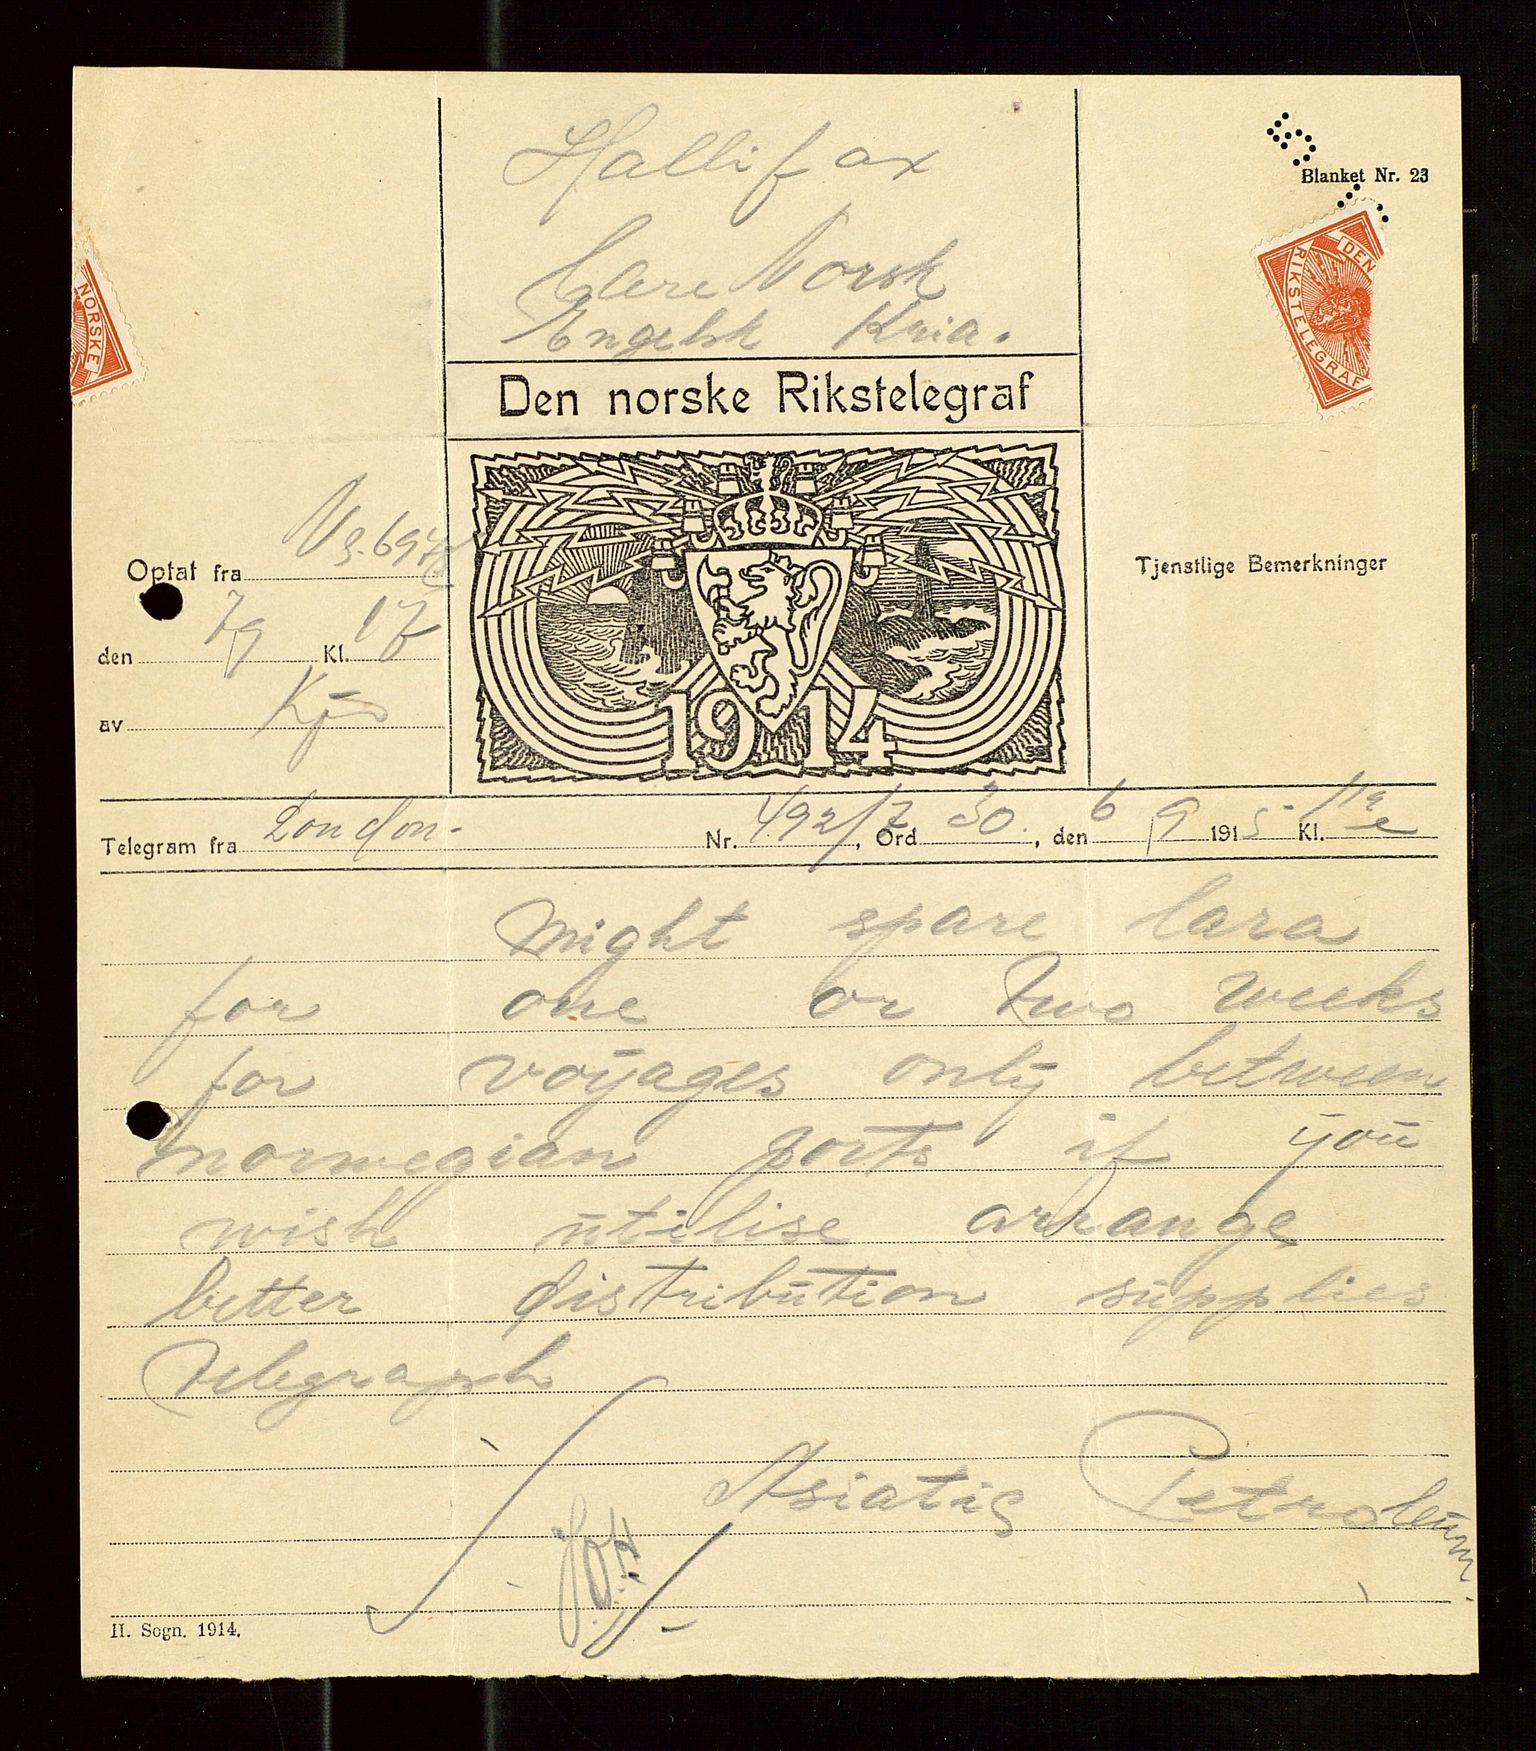 Hallifax
Blanket Nr. 23
Care Norsk
Engelsk Kria.
DEN
RIKSTELEGRAF
NORSKE
Den norske Rikstelegraf
Optat fra
Tjenstlige Bemerkninger
den 7/9 Kl. 17
av
1914
Telegram fra London. Nr. 492/7, Ord 30., den 6/9 1915 Kl. 11
Might spare Cara
for one or two weeks
for voyages only between
norwegian ports if you
wish utilise arrange
better distribution supplies
telegraph
Asiatic Petroleum.
II. Sogn. 1914.